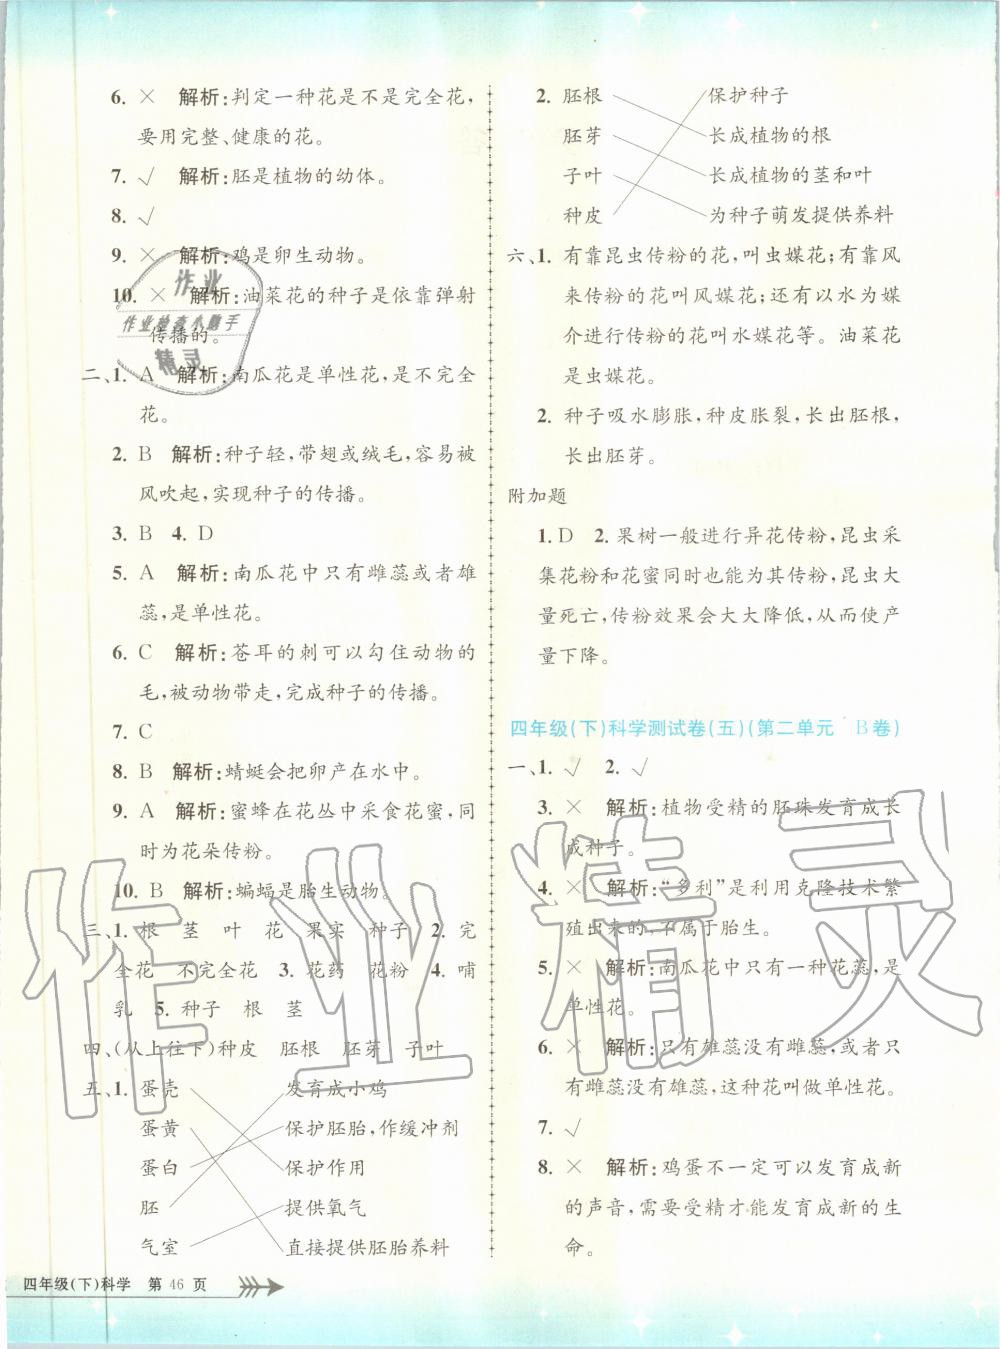 6. × 解析:判定一种花是不是完全花,
要用完整、健康的花。
7. √ 解析:胚是植物的幼体。
8. √
9. × 解析:鸡是卵生动物。
10. × 解析:油菜花的种子是依靠弹射
传播的。
二、1. A 解析:南瓜花是单性花,是不完全
花。
2. B 解析:种子轻,带翅或绒毛,容易被
风吹起,实现种子的传播。
3. B 4. D
5. A 解析:南瓜花中只有雌蕊或者雄
蕊,是单性花。
6. C 解析:苍耳的刺可以勾住动物的
毛,被动物带走,完成种子的传播。
7. C
8. B 解析:蜻蜓会把卵产在水中。
9. A 解析:蜜蜂在花丛中采食花蜜,同
时为花朵传粉。
10. B 解析:蝙蝠是胎生动物。
三、1. 根 茎 叶 花 果实 种子 2. 完
全花 不完全花 3. 花药 花粉 4. 哺
乳 5. 种子 根 茎
四、(从上往下)种皮 胚根 胚芽 子叶
五、1. 蛋壳 发育成小鸡
蛋黄 保护胚胎,作缓冲剂
蛋白 保护作用
胚 提供氧气
气室 直接提供胚胎养料
四年级(下)科学 第 46 页
2. 胚根 保护种子
胚芽 长成植物的根
子叶 长成植物的茎和叶
种皮 为种子萌发提供养料
六、1. 有靠昆虫传粉的花,叫虫媒花;有靠风
来传粉的花叫风媒花;还有以水为媒
介进行传粉的花叫水媒花等。油菜花
是虫媒花。
2. 种子吸水膨胀,种皮胀裂,长出胚根,
长出胚芽。
附加题
1. D 2. 果树一般进行异花传粉,昆虫采
集花粉和花蜜同时也能为其传粉,昆虫大
量死亡,传粉效果会大大降低,从而使产
量下降。
四年级(下)科学测试卷(五)(第二单元 B卷)
一、1. √ 2. √
3. × 解析:植物受精的胚珠发育成长
成种子。
4. × 解析:“多利”是利用克隆技术繁
殖出来的,不属于胎生。
5. × 解析:南瓜花中只有一种花蕊,是
单性花。
6. × 解析:只有雄蕊没有雌蕊,或者只
有雌蕊没有雄蕊,这种花叫做单性花。
7. √
8. × 解析:鸡蛋不一定可以发育成新
的声音,需要受精才能发育成新的生
命。
作业
作业检查小助手
精灵
作业精灵